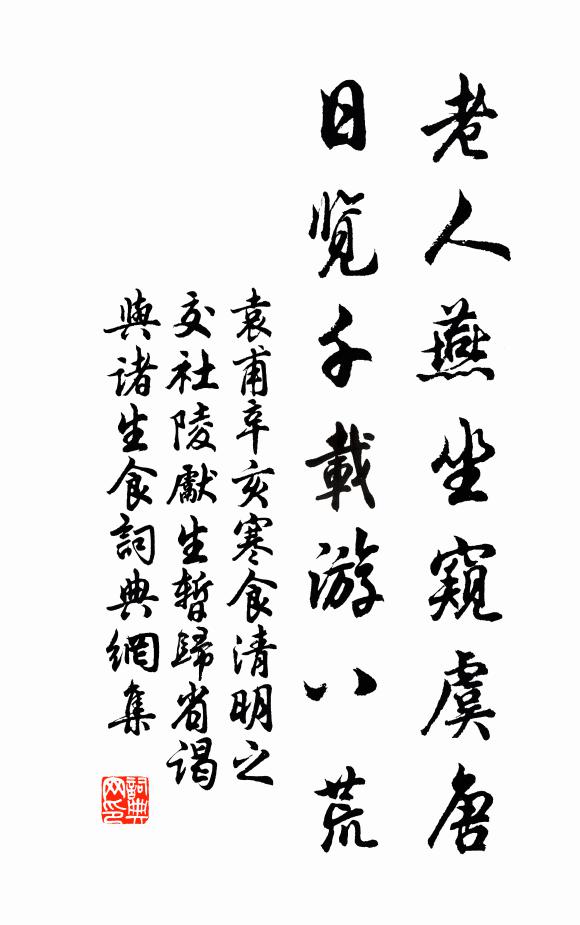 老人燕坐窺虞唐
日覽千載游八荒
袁甫辛亥寒食清明之
交社陵獻生暫歸省谒
與諸生食詞典網集
詞典
网印